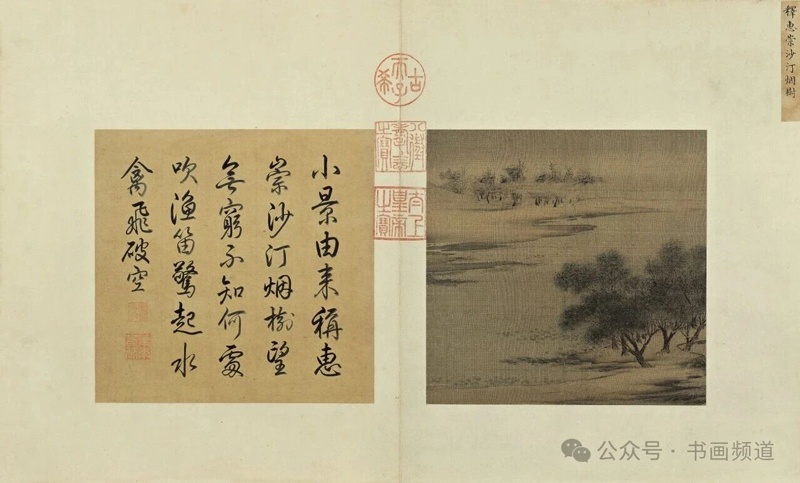 釋惠崇沙汀烟樹
古希天子
八徵耄念之寶
太上皇帝之寶
小景由来稱惠
崇沙汀烟樹望
無窮不知何處
吹漁笛驚起水
禽飛破空
公众号 · 书画频道